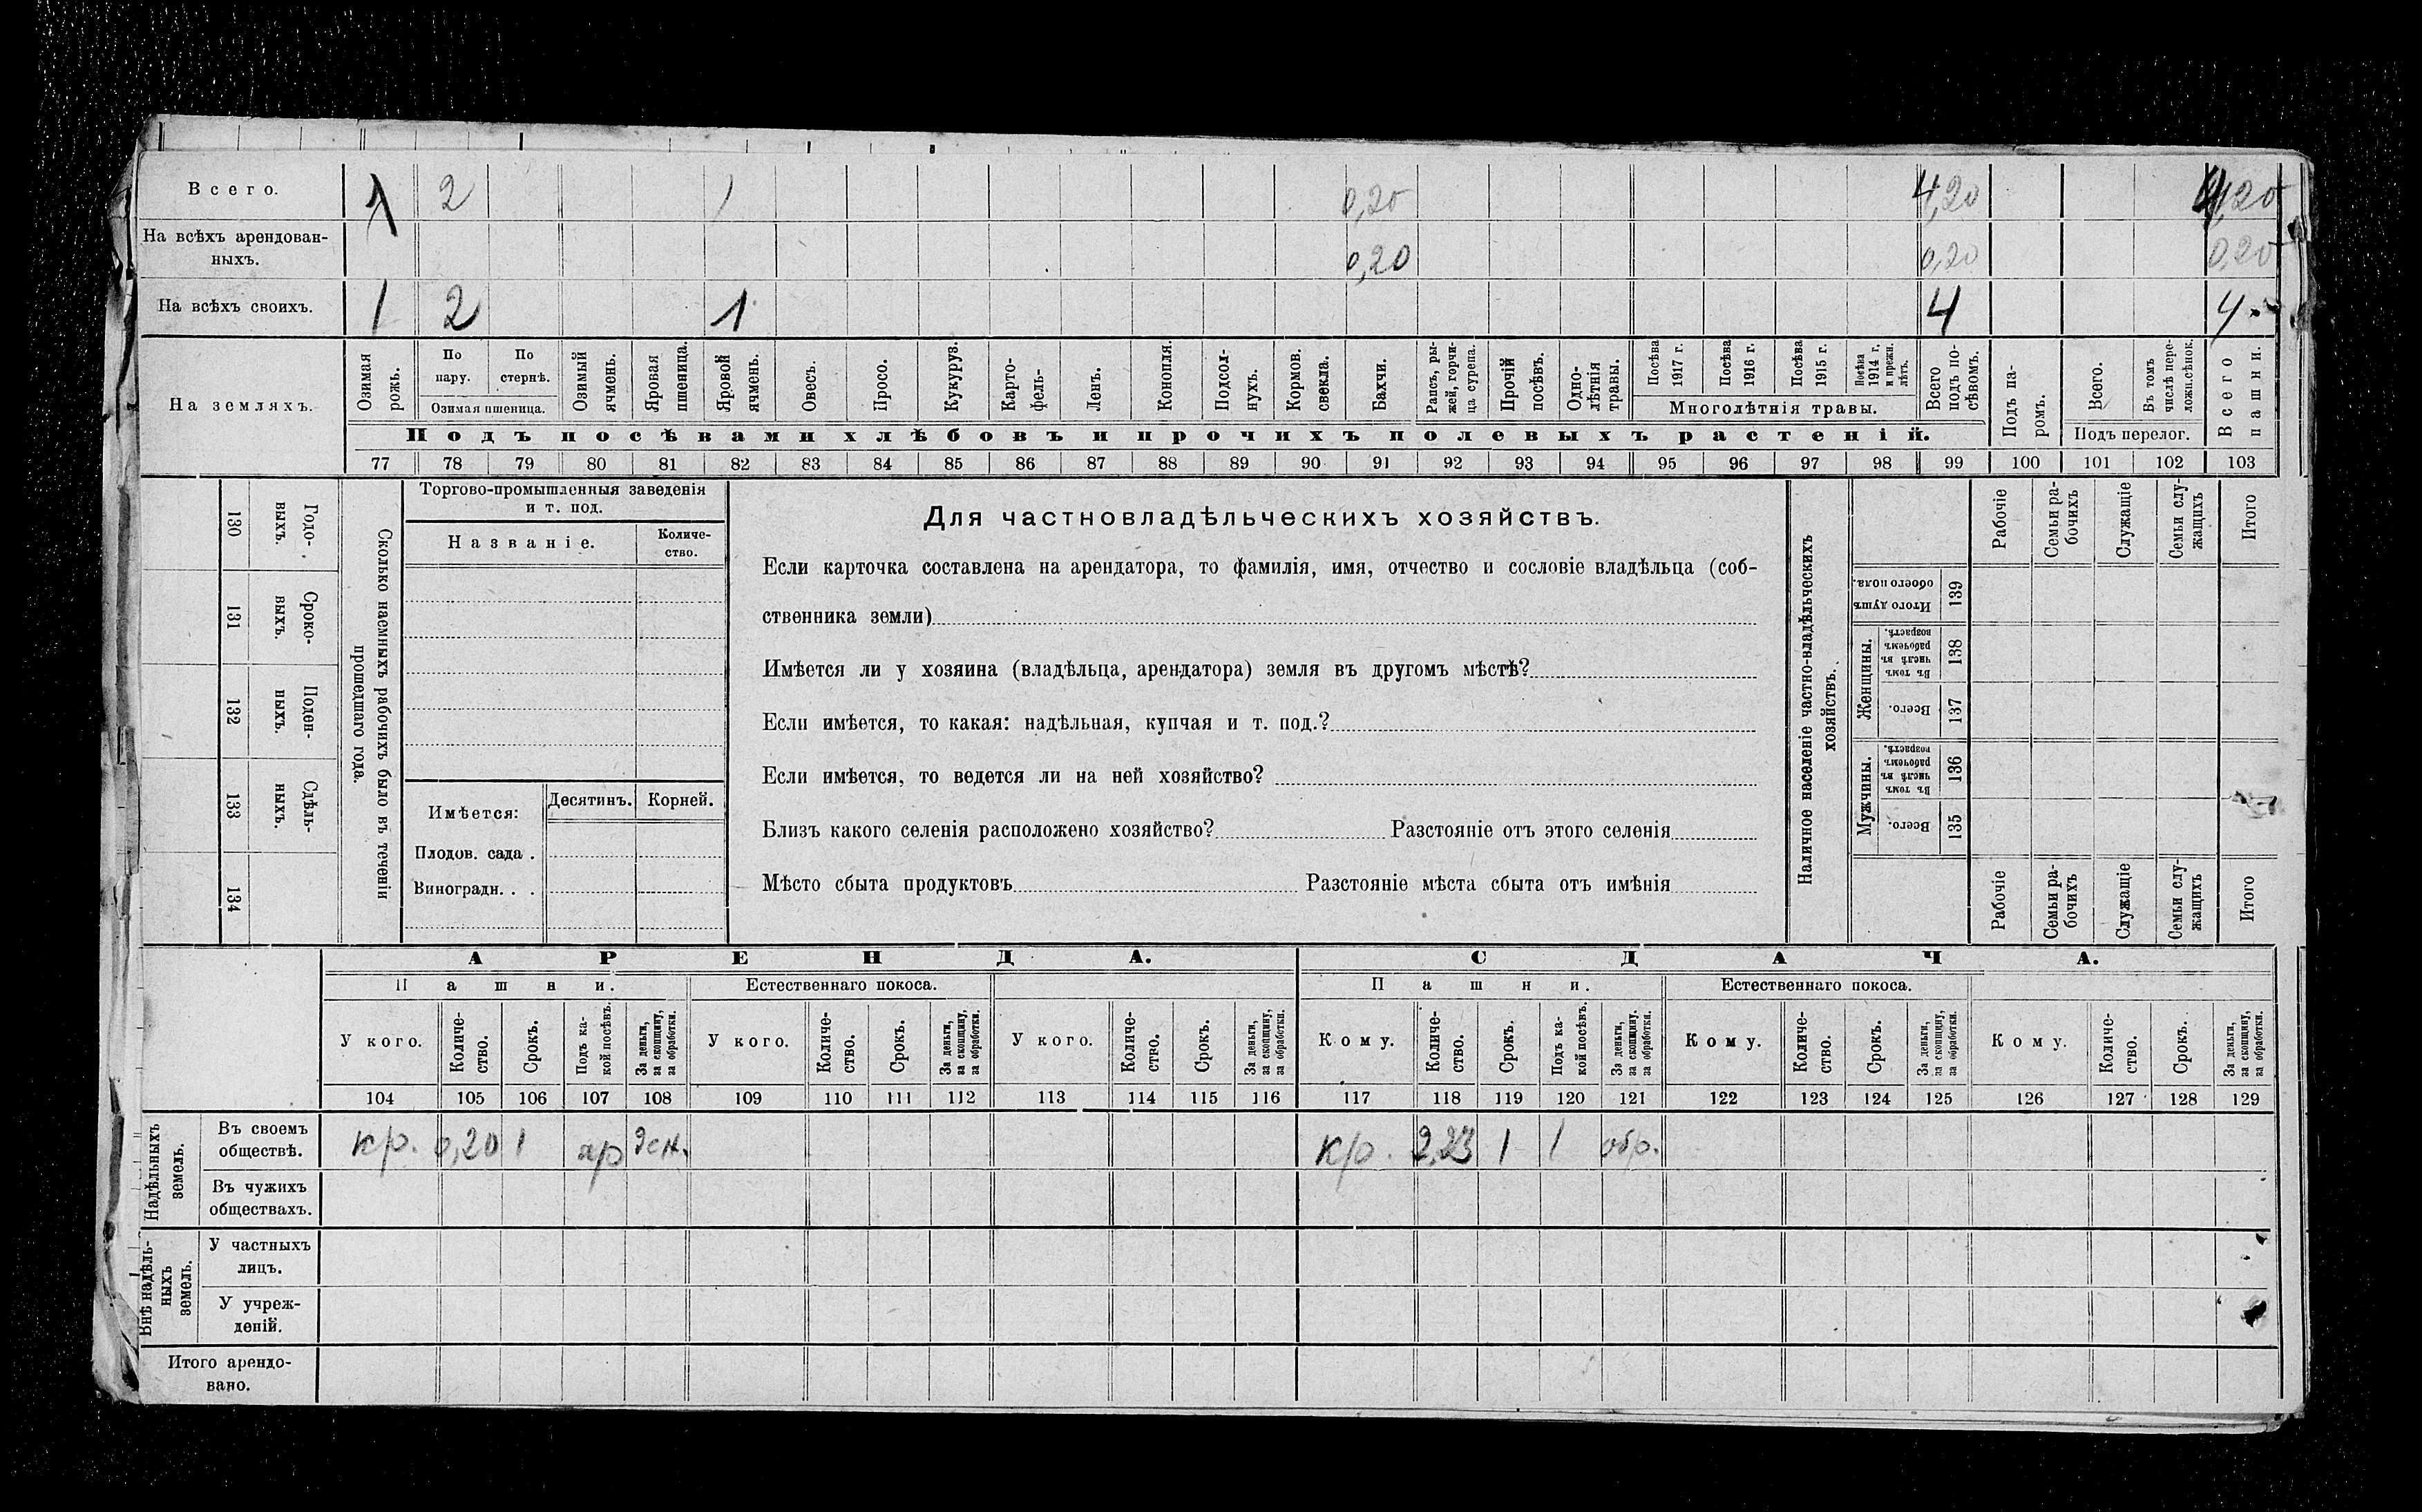 Всего. 1 2 1 0,20 4,20 4,20
На всѣхъ арендован-
ныхъ. 0,20 0,20 0,20
На всѣхъ своихъ. 1 2 1 4 4
На земляхъ.
Озимая
рожь.
По
пару.
По
стернѣ.
Озимая пшеница.
Озимый
ячмень.
Яровая
пшеница.
Яровой
ячмень.
Овесъ.
Просо.
Кукуруз.
Карто-
фель-
Ленъ.
Конопля.
Подсол-
нухъ.
Кормов.
свекла.
Бахчи.
Рапсъ, ры-
жей, горчи-
ца сурепа.
Прочій
посѣвъ.
Одно-
лѣтнія
травы.
Посѣва
1917 г.
Посѣва
1916 г.
Посѣва
1915 г.
Посѣва
1914 г.
и прежн.
лѣтъ.
Многолѣтнія травы.
Всего
подъ по-
сѣвомъ.
Подъ па-
ромъ.
Всего.
Въ томъ
числѣ пере-
ложн.сѣнок.
Подъ перелог.
Всего
пашни.
Подъ посѣвами хлѣбовъ и прочихъ полевыхъ растеній.
77 78 79 80 81 82 83 84 85 86 87 88 89 90 91 92 93 94 95 96 97 98 99 100 101 102 103
130
Годо-
выхъ.
131
Сроко-
выхъ.
132
Поден-
ныхъ.
133
Сдѣль-
ныхъ.
134
Сколько наемныхъ рабочихъ было въ теченіи
прошедшаго года.
Торгово-промышленныя заведенія
и т. под.
Названіе.
Количе-
ство.
Имѣется:
Десятинъ.
Корней.
Плодов. сада .
Виноградн. . .
Для частновладѣльческихъ хозяйствъ.
Если карточка составлена на арендатора, то фамилія, имя, отчество и сословіе владѣльца (соб-
ственника земли)
Имѣется ли у хозяина (владѣльца, арендатора) земля въ другомъ мѣстѣ?
Если имѣется, то какая: надѣльная, купчая и т. под.?
Если имѣется, то ведется ли на ней хозяйство?
Близъ какого селенія расположено хозяйство? Разстояніе отъ этого селенія
Мѣсто сбыта продуктовъ Разстояніе мѣста сбыта отъ имѣнія
Наличное населеніе частно-владѣльческихъ
хозяйствъ.
Рабочіе
Семьи ра-
бочихъ
Служащіе
Семьи слу-
жащихъ
Итого
Итого душъ
обоего пола.
139
Женщины.
Въ томъ
числѣ въ
рабочемъ
возрастѣ.
138
Всего.
137
Мужчины.
Въ томъ
числѣ въ
рабочемъ
возрастѣ.
136
Всего.
135
Рабочіе
Семьи ра-
бочихъ
Служащіе
Семьи слу-
жащихъ
Итого
АРЕНДА. СДАЧА.
Пашни. Естественнаго покоса. Пашни. Естественнаго покоса.
У кого.
Количе-
ство.
Срокъ.
Подъ ка-
кой посѣвъ.
За деньги,
за скопщину,
за обработки.
У кого.
Количе-
ство.
Срокъ.
За деньги,
за скопщину,
за обработки.
У кого.
Количе-
ство.
Срокъ.
За деньги,
за скопщину,
за обработки.
Кому.
Количе-
ство.
Срокъ.
Подъ ка-
кой посѣвъ.
За деньги,
за скопщину.
за обработки.
Кому.
Количе-
ство.
Срокъ.
За деньги,
за скопщину,
за обработки.
Кому.
Количе-
ство.
Срокъ.
За деньги,
за скопщину,
за обработки.
104 105 106 107 108 109 110 111 112 113 114 115 116 117 118 119 120 121 122 123 124 125 126 127 128 129
Надѣльныхъ
земель.
Въ своемъ
обществѣ. кр. 0,20 1 кр. 2,23 1 1 обр.
Въ чужихъ
обществахъ.
Внѣ надѣль-
ныхъ
земель.
У частныхъ
лицъ.
У учреж-
деній.
Итого арендо-
вано.